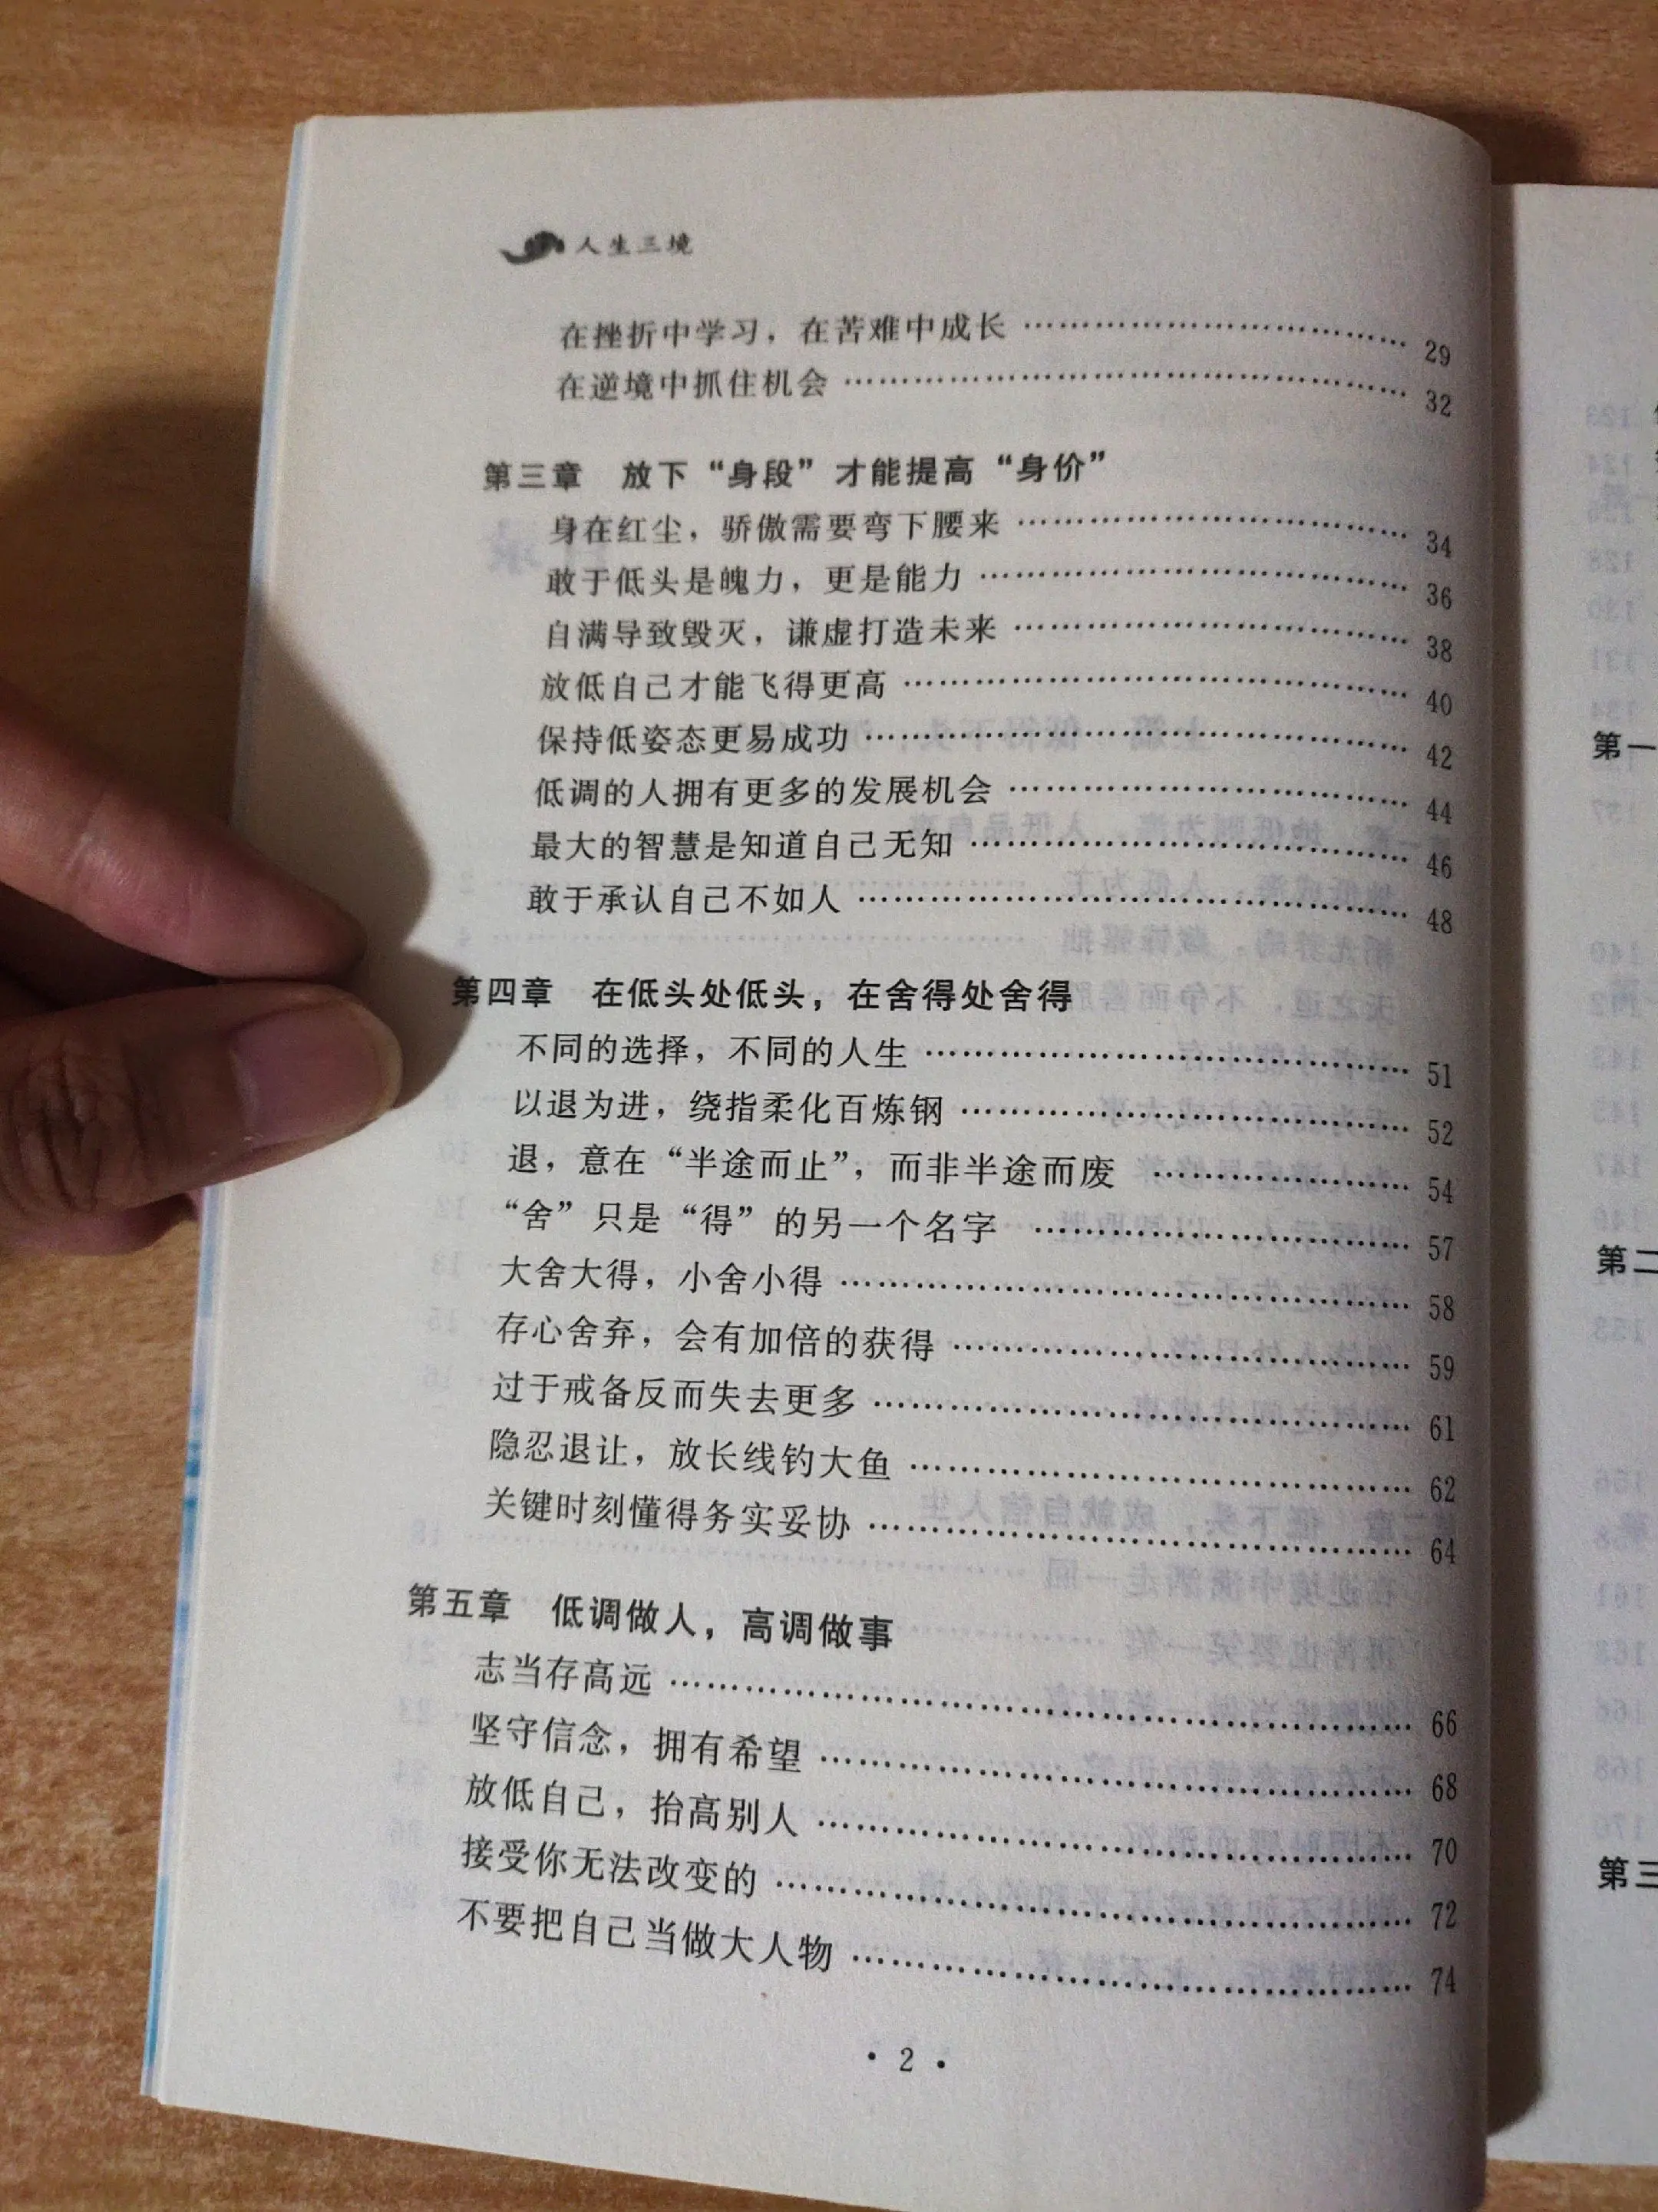 人生三境
在挫折中学习，在苦难中成长 …………………………… 29
在逆境中抓住机会 …………………………………… 32
第三章 放下“身段”才能提高“身价”
身在红尘，骄傲需要弯下腰来 …………………………… 34
敢于低头是魄力，更是能力 ……………………………… 36
自满导致毁灭，谦虚打造未来 …………………………… 38
放低自己才能飞得更高 ………………………………… 40
保持低姿态更易成功 …………………………………… 42
低调的人拥有更多的发展机会 …………………………… 44
最大的智慧是知道自己无知 ……………………………… 46
敢于承认自己不如人 …………………………………… 48
第四章 在低头处低头，在舍得处舍得
不同的选择，不同的人生 ………………………………… 51
以退为进，绕指柔化百炼钢 ……………………………… 52
退，意在“半途而止”，而非半途而废 …………………… 54
“舍”只是“得”的另一个名字 …………………………… 57
大舍大得，小舍小得 …………………………………… 58
存心舍弃，会有加倍的获得 ……………………………… 59
过于戒备反而失去更多 ………………………………… 61
隐忍退让，放长线钓大鱼 ………………………………… 62
关键时刻懂得务实妥协 ………………………………… 64
第五章 低调做人，高调做事
志当存高远 ……………………………………………… 66
坚守信念，拥有希望 …………………………………… 68
放低自己，抬高别人 …………………………………… 70
接受你无法改变的 ……………………………………… 72
不要把自己当做大人物 ………………………………… 74
· 2 ·
第一
第二
第三